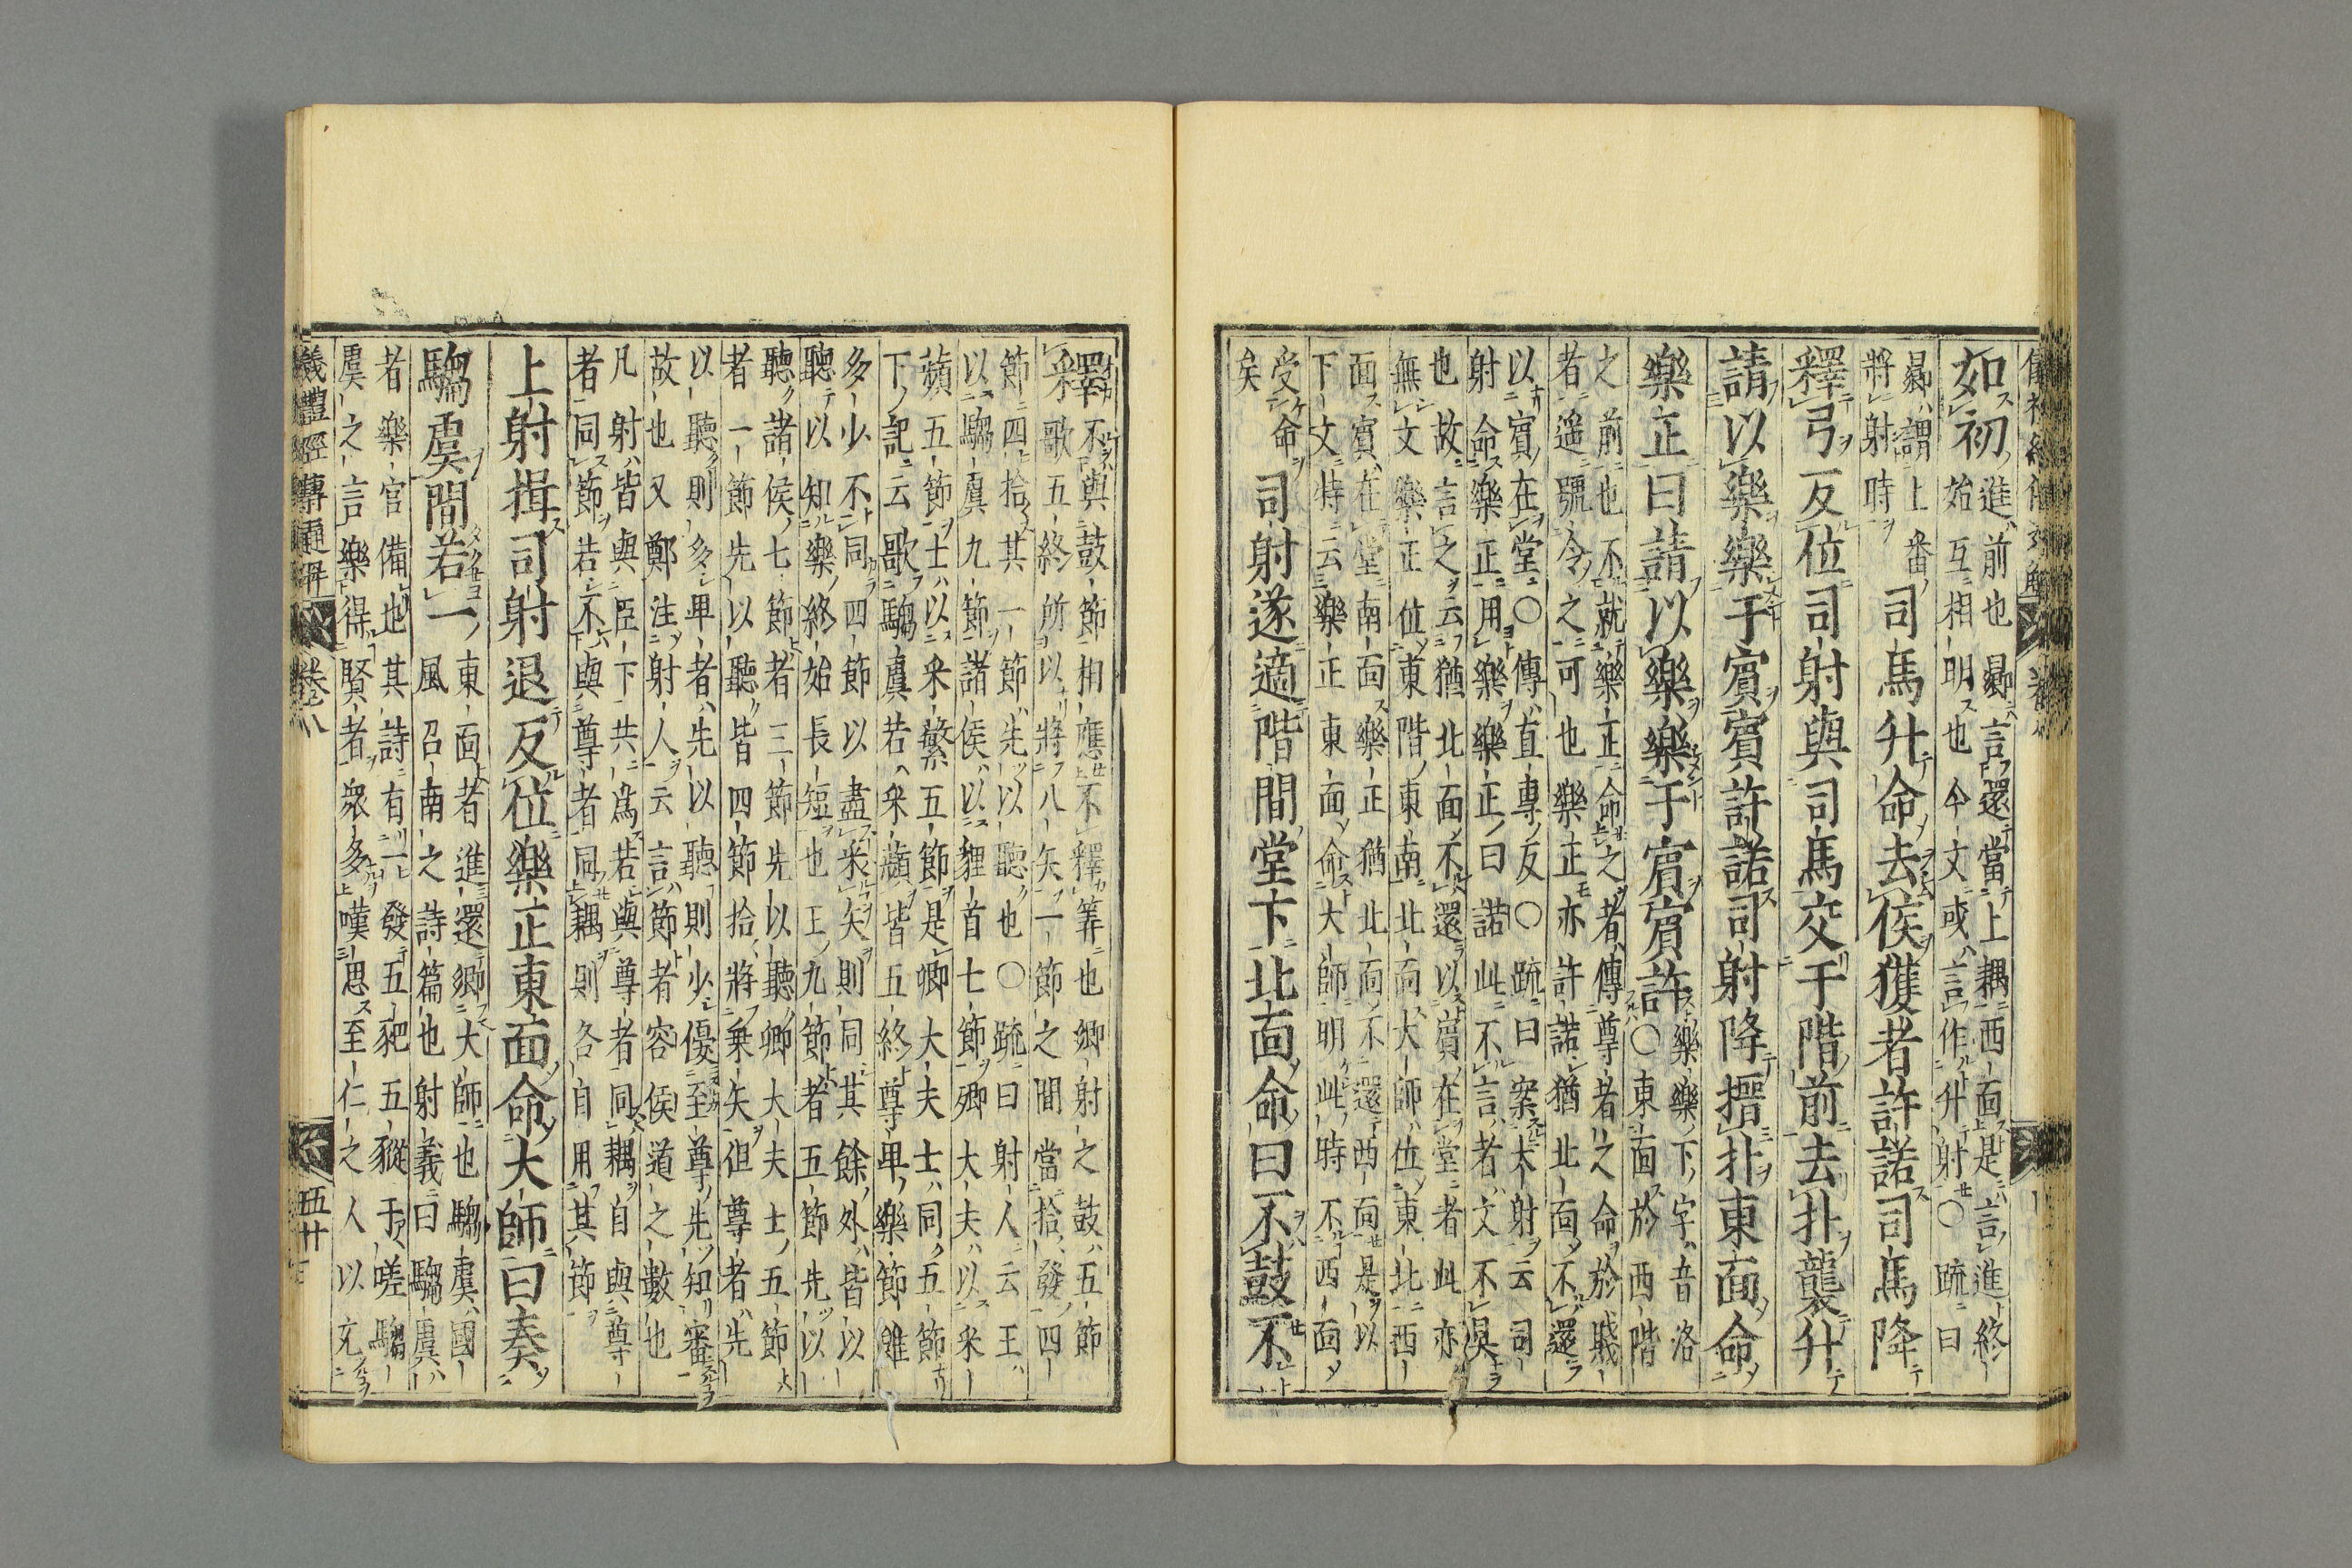 如初進前也曏言還當上耦西面是言進終
始互相明也今文或言作升射〇疏曰
曏謂上番
將射時司馬升命去侯獲者許諾司馬降
釋弓反位司射與司馬交于階前去扑襲升
請以樂樂于賓賓許諾司射降搢扑東面命
樂正曰請以樂樂于賓賓許樂樂下字音洛
〇東面於西階
之前也不就樂正命之者傳尊者之命於賤
者遥號令之可也樂正亦許諾猶北面不還
以賓在堂〇傳直專反〇疏曰案大射云司
射命樂正用樂樂正曰諾此不言者文不具
也故言之云猶北面不還以賓在堂者此亦
無文樂正位東階東南北面大師位東北西
面賓在堂南面樂正猶北面不還西面是以
下文特云樂正東面命大師明此時不西面
受命
矣司射遂適階間堂下北面命曰不鼓不
釋不與鼓節相應不釋筭也鄉射之鼓五節
歌五終所以將八矢一節之間當拾發四
節四拾其一節先以聽也〇疏曰射人云王
以騶虞九節諸侯以貍首七節卿大夫以采
蘋五節士以采蘩五節是卿大夫士同五節
下記云歌騶虞若采蘋皆五終尊卑樂節雖
多少不同四節以盡乘矢則同其餘外皆以
聽以知樂終始長短也王九節者五節先以
聽諸侯七節者三節先以聽卿大夫士五節
者一節先以聽皆四節拾將乘矢但尊者先
以聽則多卑者先以聽則少優至尊先知審
故也又鄭注射人云言節者容侯道之數也
凡射皆與臣下共爲若與尊者同耦自與尊
者同節若不與尊者同耦則各自用其節
上射揖司射退反位樂正東面命大師曰奏
騶虞間若一東面者進還鄉大師也騶虞國
風召南之詩篇也射義曰騶虞
者樂官備也其詩有一發五豝五豵于嗟騶
虞之言樂得賢者衆多嘆思至仁之人以充
儀禮經傳通解 卷八 五十